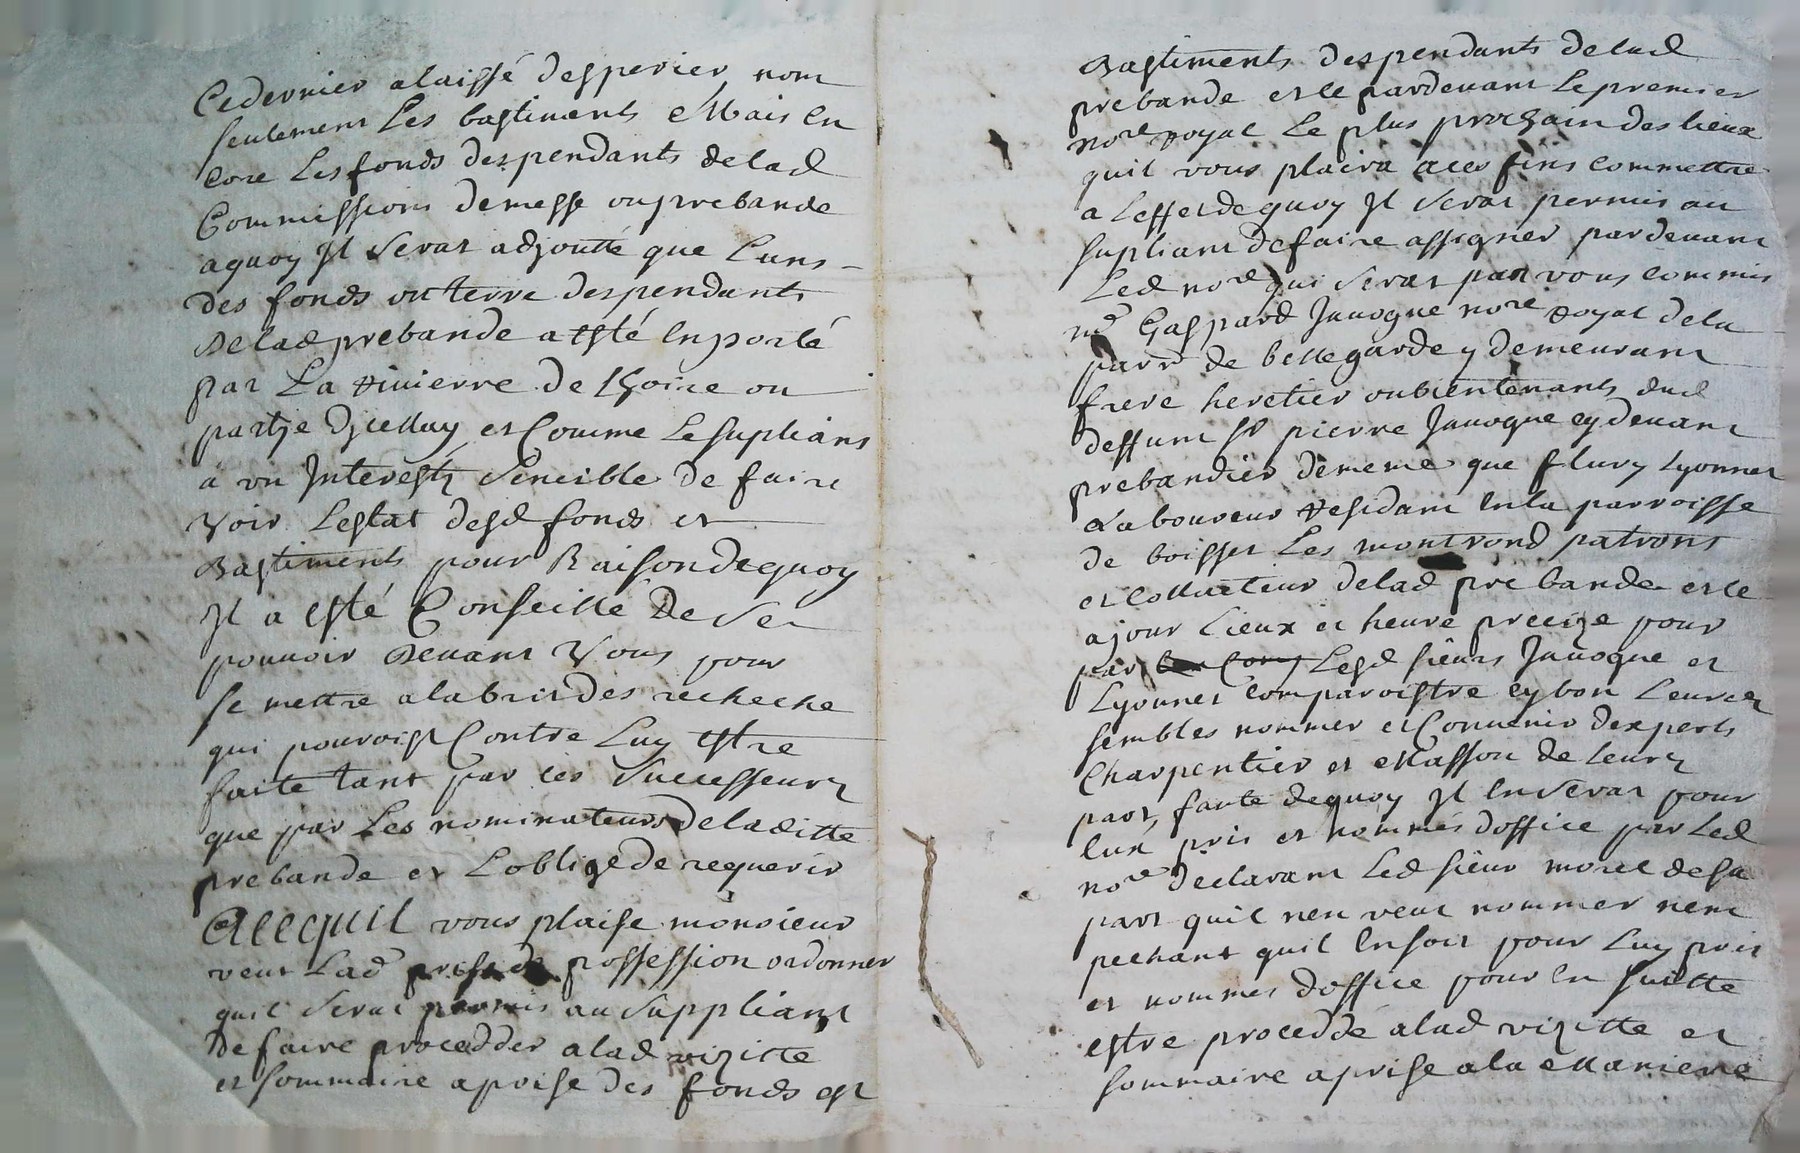 Cedernier alaissé desperier nom
seulement Les bastiments Mais En
Core Les fonds despendants delad
Commissions demesse ou prebande
aquoy Jl Serat adjoutté que Luns
des fonds ou terre despendants
delad prebande a esté Enporté
par La riviere de Loire ou
partje djcelluy et Comme Le supliant
a un Interest Sencible de faire
Voir Lestat desd fonds et
Bastiments pour Raison dequoy
Jl a esté Conseillé de Se
pouvoir devant Vous pour
se mettre alabrit des recheche
qui pouroist Contre Luy estre
faite tant par les Successeurs
que par Les nominateurs de laditte
prebande et Loblige de requerir
Acequil vous plaise monsieur
veut Lad prise de possession ordonner
quil Serat permis au Suppliant
de faire procedder alad vizitte
et sommaire aprise des fonds et
Bastiments despendants delad
prebande et ce pardevant Le premier
nore royal Le plus prochain des lieux
quil vous plaira aces fins commettre
a Leffet de quoy Jl Serat permis au
supliant de faire assigner pardevant
Led nore qui Serat par vous commis
me Gaspard Javogue nore royal de la
parr de bellegarde y demeurant
frere heretier oubientenants dud
deffunt sr pierre Javogue cy devant
prebandier dememe que fleury Lyonnet
Laboureur residant En la parroisse
de boisset Les montrond patrons
et Collateur delad prebande et ce
a jour Lieux et heure precize pour
par Lesd sieurs Javogue et
Lyonnet comparoistre cy bon Leur
sembles nommer et Convenir dexperts
Charpentier et Masson de leurs
part, faute dequoy Jl En Serat pour
Eux pris et nommés doffice par Led
nore declarant Led sieur morel de sa
part quil nen veut nommer nem
pechant quil En soit pour Luy pris
et nommes doffice pour En suitte
estre proceddé alad vizitte et
sommaire aprise ala Maniere